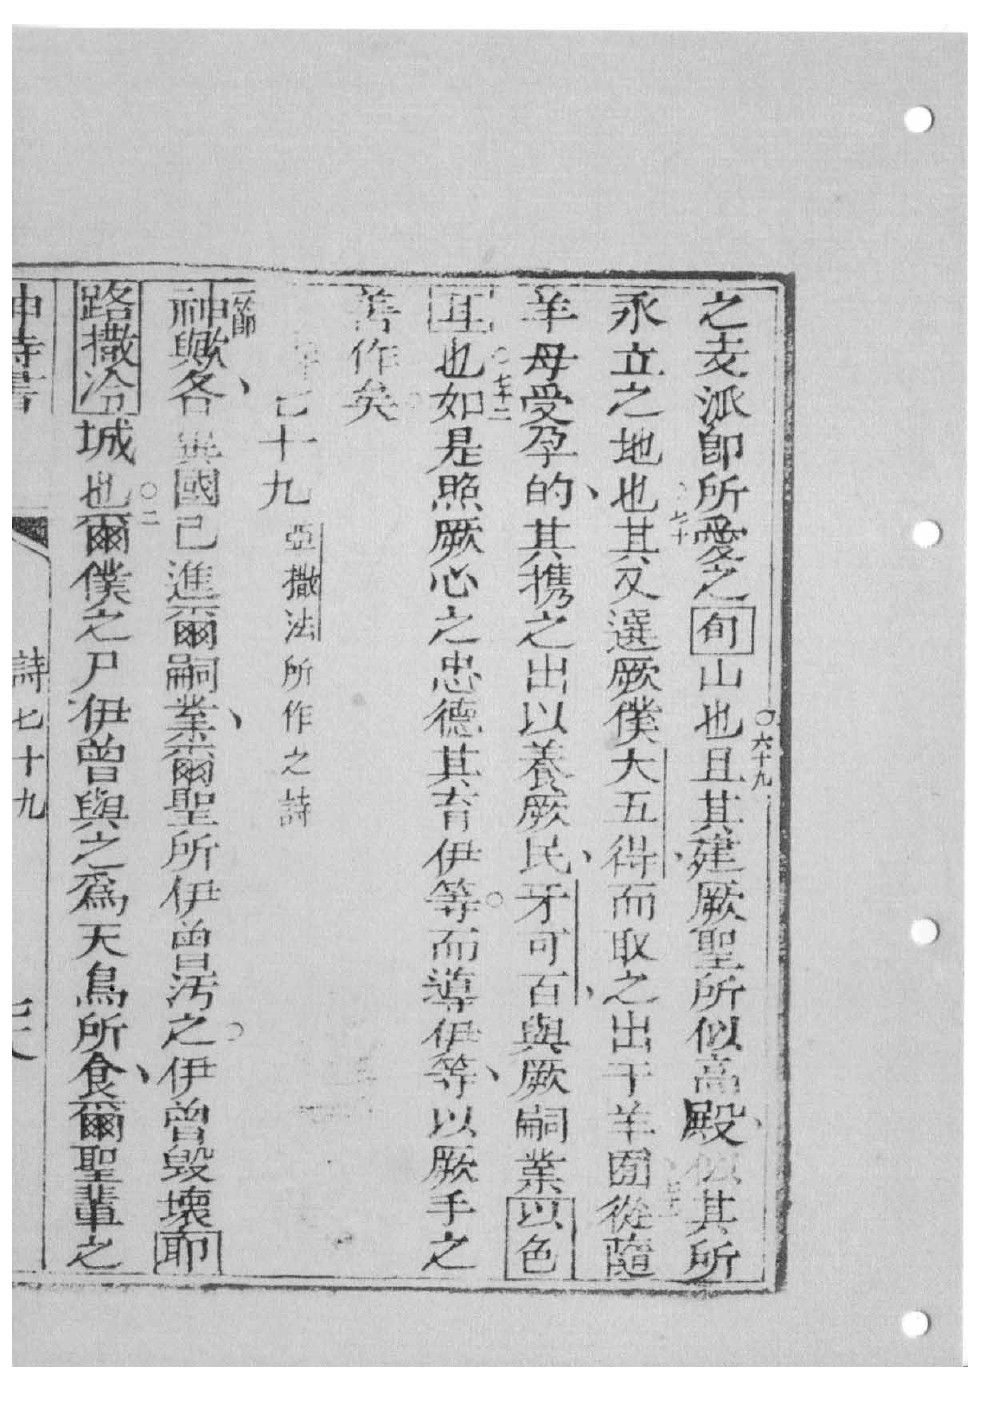 之支派卽所愛之旬山也○六十九且其建厥聖所似高殿似其所
永立之地也○七十其又選厥僕大五得而取之出于羊圈從隨
羊母受孕的其携之出以養厥民牙可百與厥嗣業以色
耳也○七十二如是照厥心之忠德其育伊等而導伊等以厥手之
善作矣
七十九 亞撒法所作之詩
節神歟各異國已進爾嗣業爾聖所伊曾污之伊曾毀壞耶
路撒冷城也○二爾僕之尸伊曾與之爲天鳥所食爾聖輩之
神詩書 詩七十九